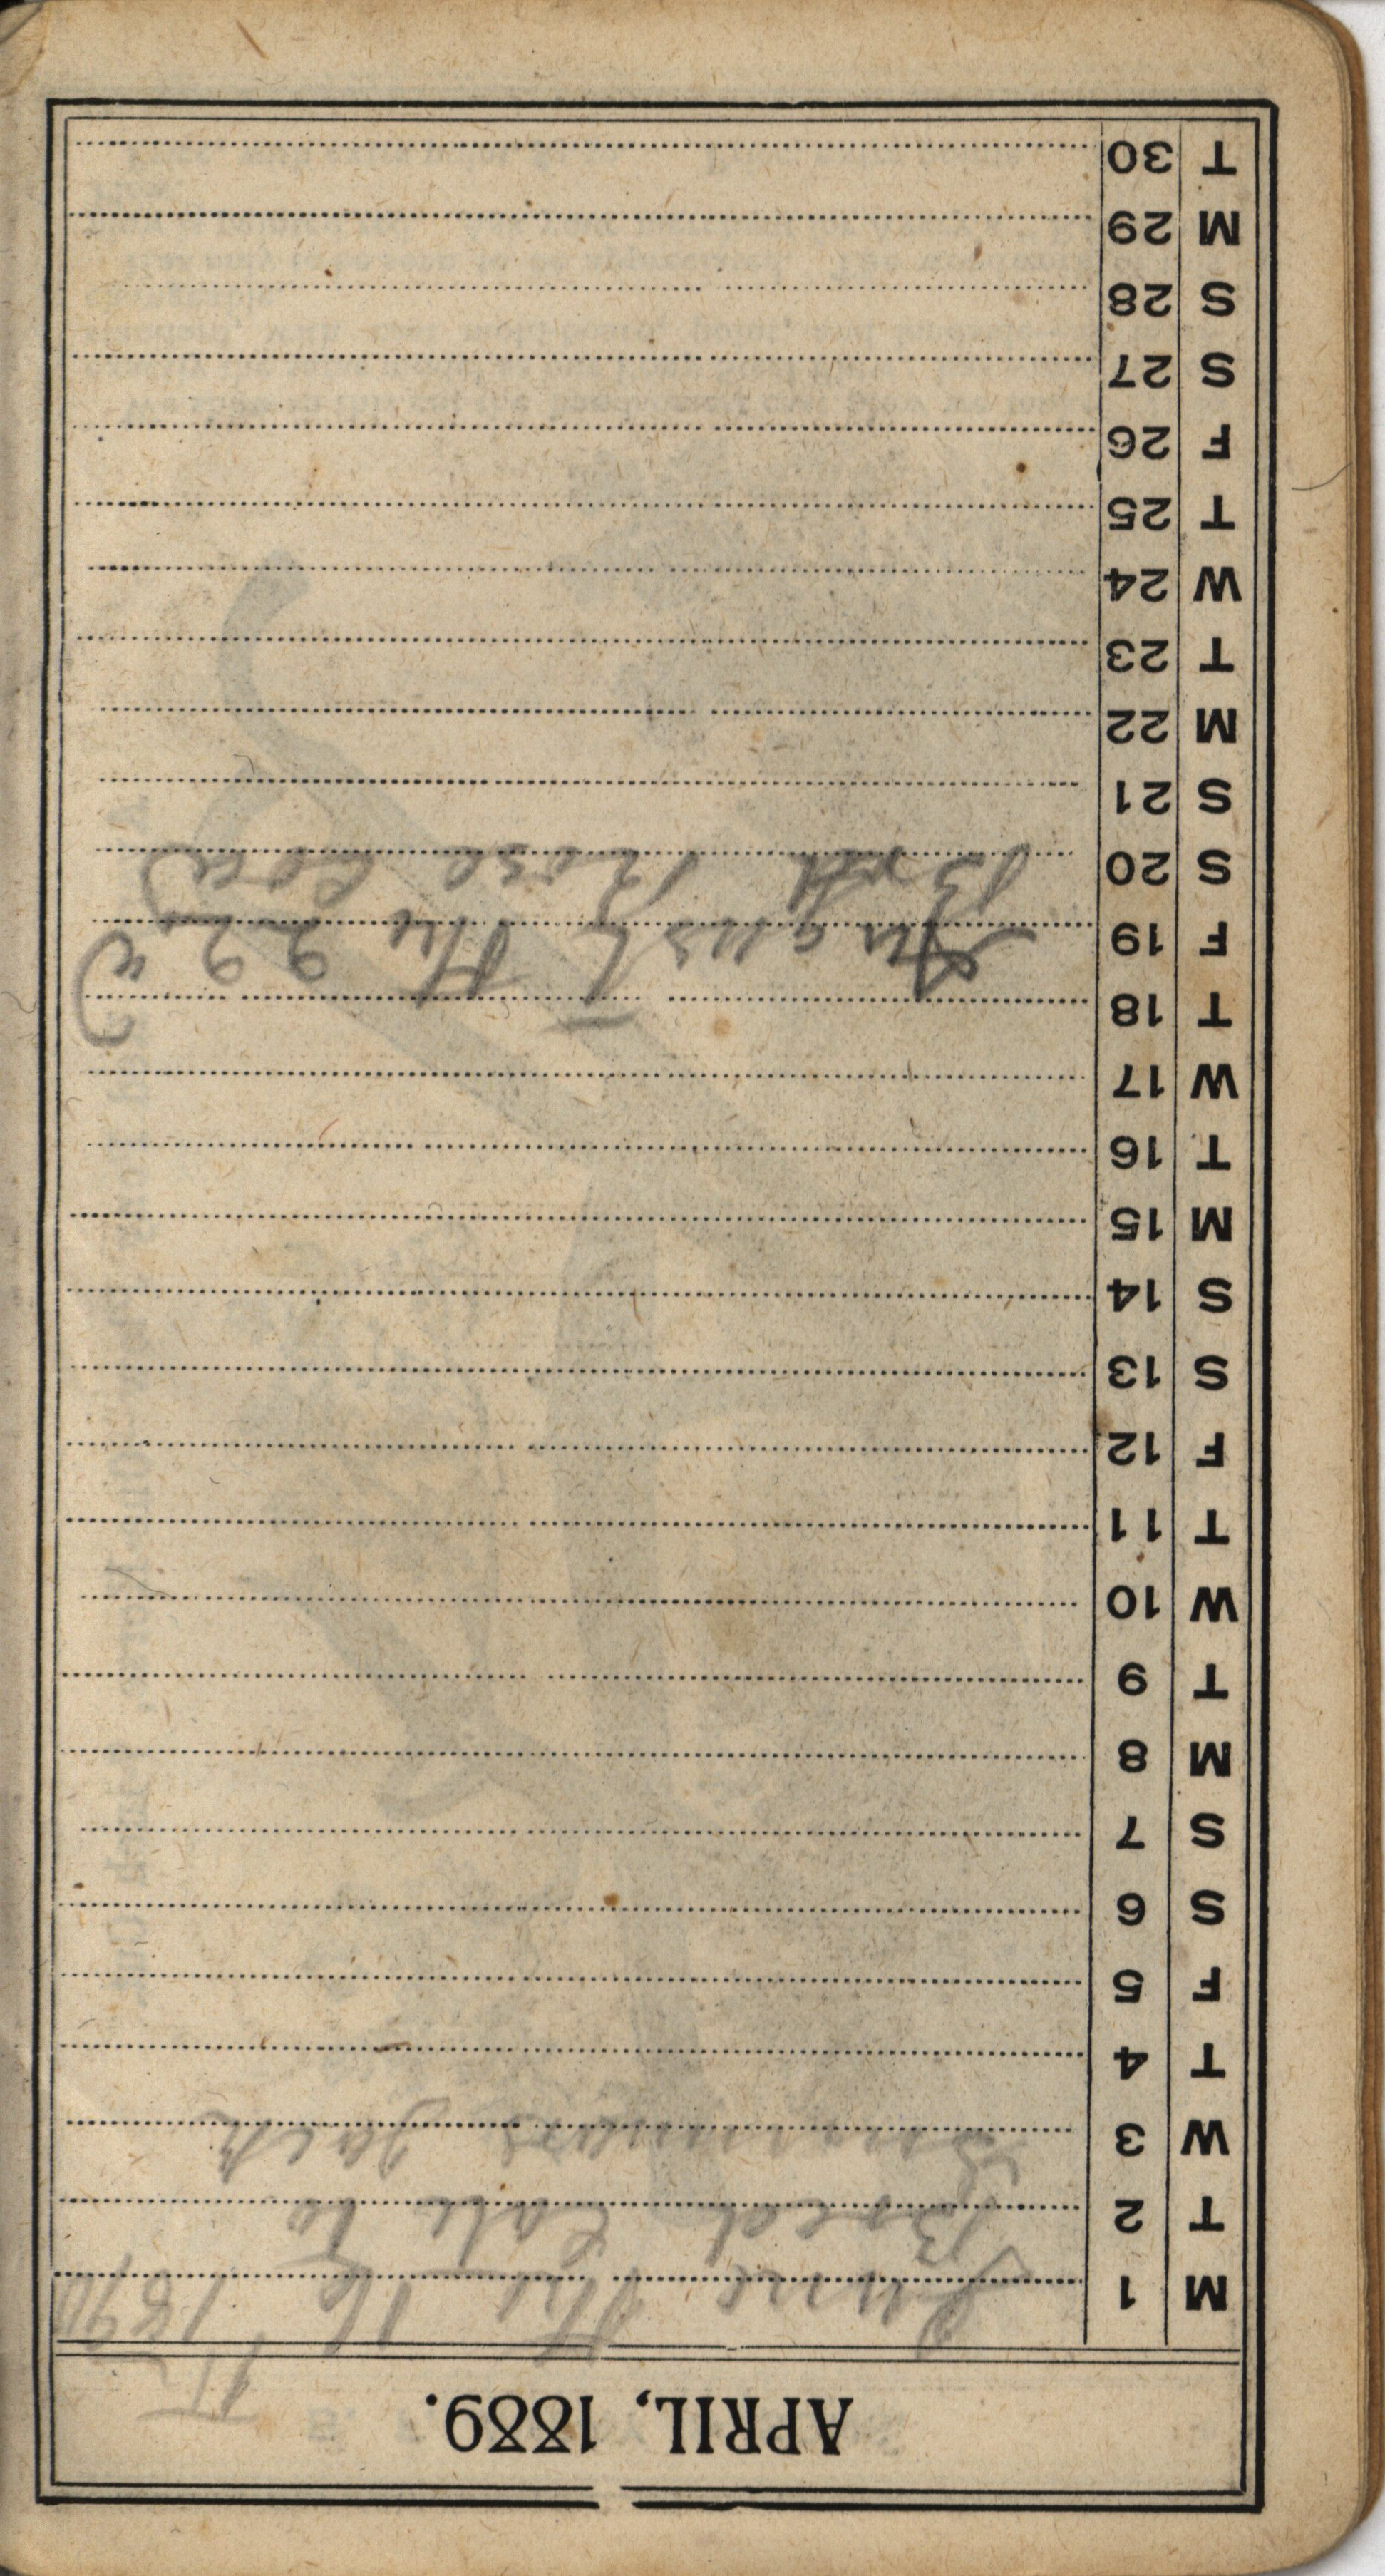 APRIL, 1889.
M 1 June The 16 1890
T 2 Bred
W 3 Jack
T 4
F 5
S 6
S 7
M 8
T 9
W 10
T 11
F 12
S 13
S 14
M 15
T 16
W 17
T 18
F 19 August The
S 20 Bred Rose Cow
S 21
M 22
T 23
W 24
T 25
F 26
S 27
S 28
M 29
T 30